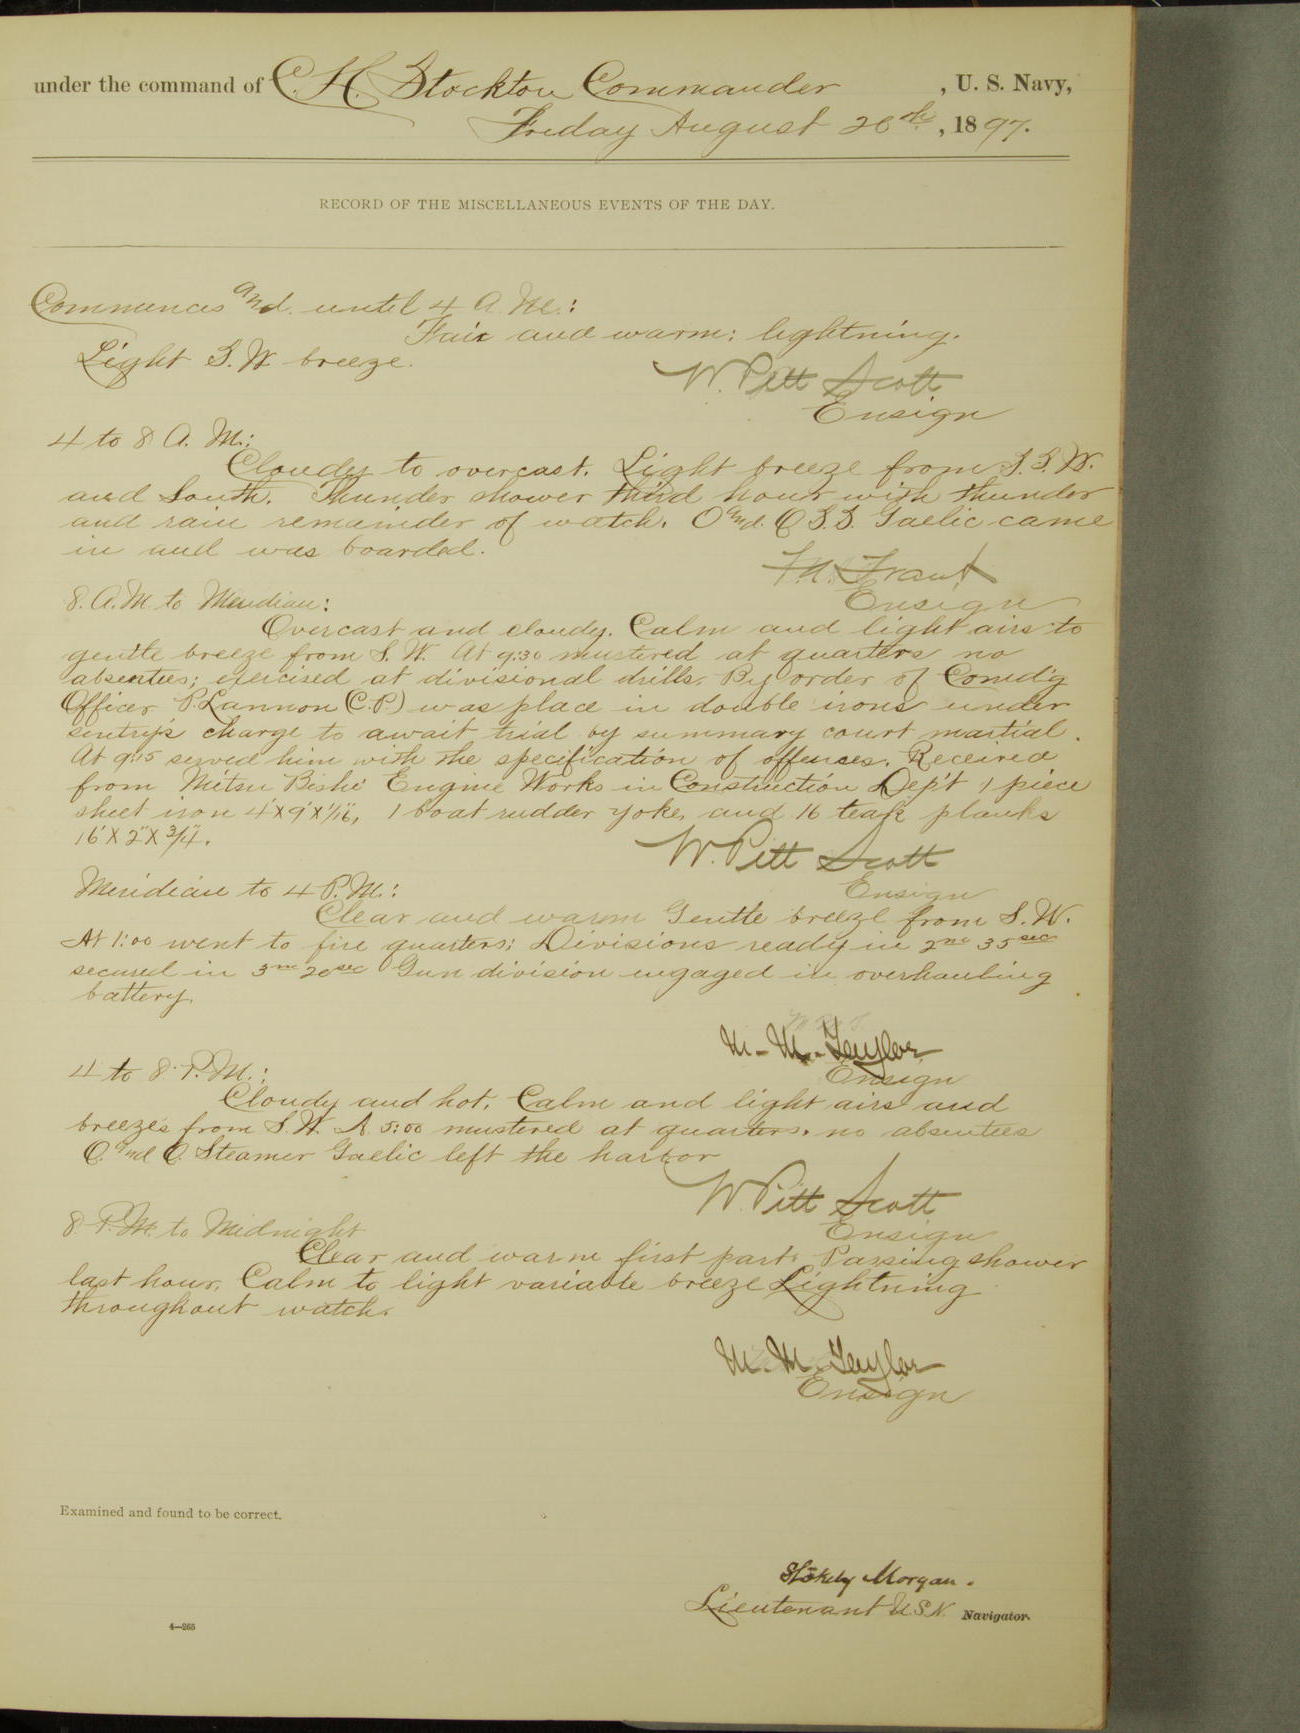 under the command of C. H. Stockton Commander, U. S. Navy,
Friday August 20th, 1897.
RECORD OF THE MISCELLANEOUS EVENTS OF THE DAY.
Commences and until 4 A.M.:
Fair and warm: lightning.
Light S.W. breeze.
W. Pitt Scott
Ensign
4 to 8 A. M.:
Cloudy to overcast. Light breeze from S.S.W.
and South. Thunder shower third hour with thunder
and rain remainder of watch. O and O S.S. Gaelic came
in and was boarded.
Ensign
8. A.M. to Meridian:
Overcast and cloudy. Calm and light airs to
gentle breeze from S. W. At 9:30 mustered at quarters no
absentees; exercised at divisional drills. By order of Comd'g
Officer P. Lannon (C.P.) was place in double irons under
sentry's charge to await trial by summary court martial.
At 9:15 served him with the specification of offenses. Received
from Mitsu Bishi Engine Works in Construction Dep't 1 piece
sheet iron 4'X9'X1/16", 1 boat rudder yoke, and 16 teak planks
16'X2"X3/4".
W. Pitt Scott
Ensign
Meridian to 4 P.M.:
Clear and warm Gentle breeze from S. W.
At 1:00 went to fire quarters; Divisions ready in 2m 35sec
secured in 3m 20sec Gun division engaged in overhauling
battery.
M. M. Taylor
Ensign
4 to 8 P.M.:
Cloudy and hot. Calm and light airs and
breezes from S.W. A 5:00 mustered at quarters. no absentees
O. and O. Steamer Gaelic left the harbor
W. Pitt Scott
Ensign
8 P.M. to Midnight
Clear and warm first part. Passing shower
last hour. Calm to light variable breeze Lightning
throughout watch.
M. M. Taylor
Ensign
Examined and found to be correct.
Stokely Morgan.
Lieutenant U.S.N. Navigator.
4—265